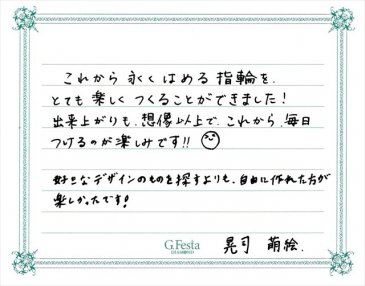 これから 永くはめる 指輪を、
とても 楽しく つくることができました!
出来上がりも、想像以上で、これから、毎日
つけるのが楽しみです!!
好きなデザインのものを探すよりも、自由に作れた方が
楽しかったです!
G.Festa
DIAMOND
晃司 萌絵.